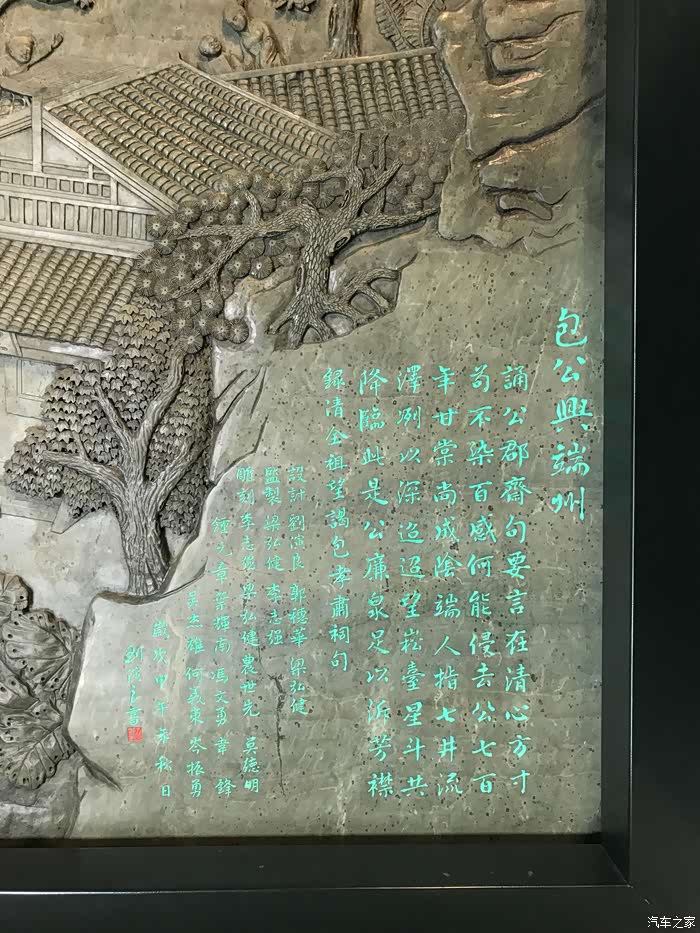 包公興端州
誦公郡齋句要言在清心方寸
苟不染百感何能侵去公七百
年甘棠尚成陰端人指七井流
澤冽以深迢迢望崧臺星斗共
降臨此是公廉泉足以泝芳襟
錄清全祖望謁包孝肅祠句
設計 劉演良 郭穗華 梁弘健
監製 梁弘健 李志强
雕刻 李志强 梁弘健 農世先 莫德明
鍾元章 梁輝南 馮文勇 韋鋒
吴杰雄 何義東 岑振勇
歲次甲午年秋日
劉演良書
汽车之家